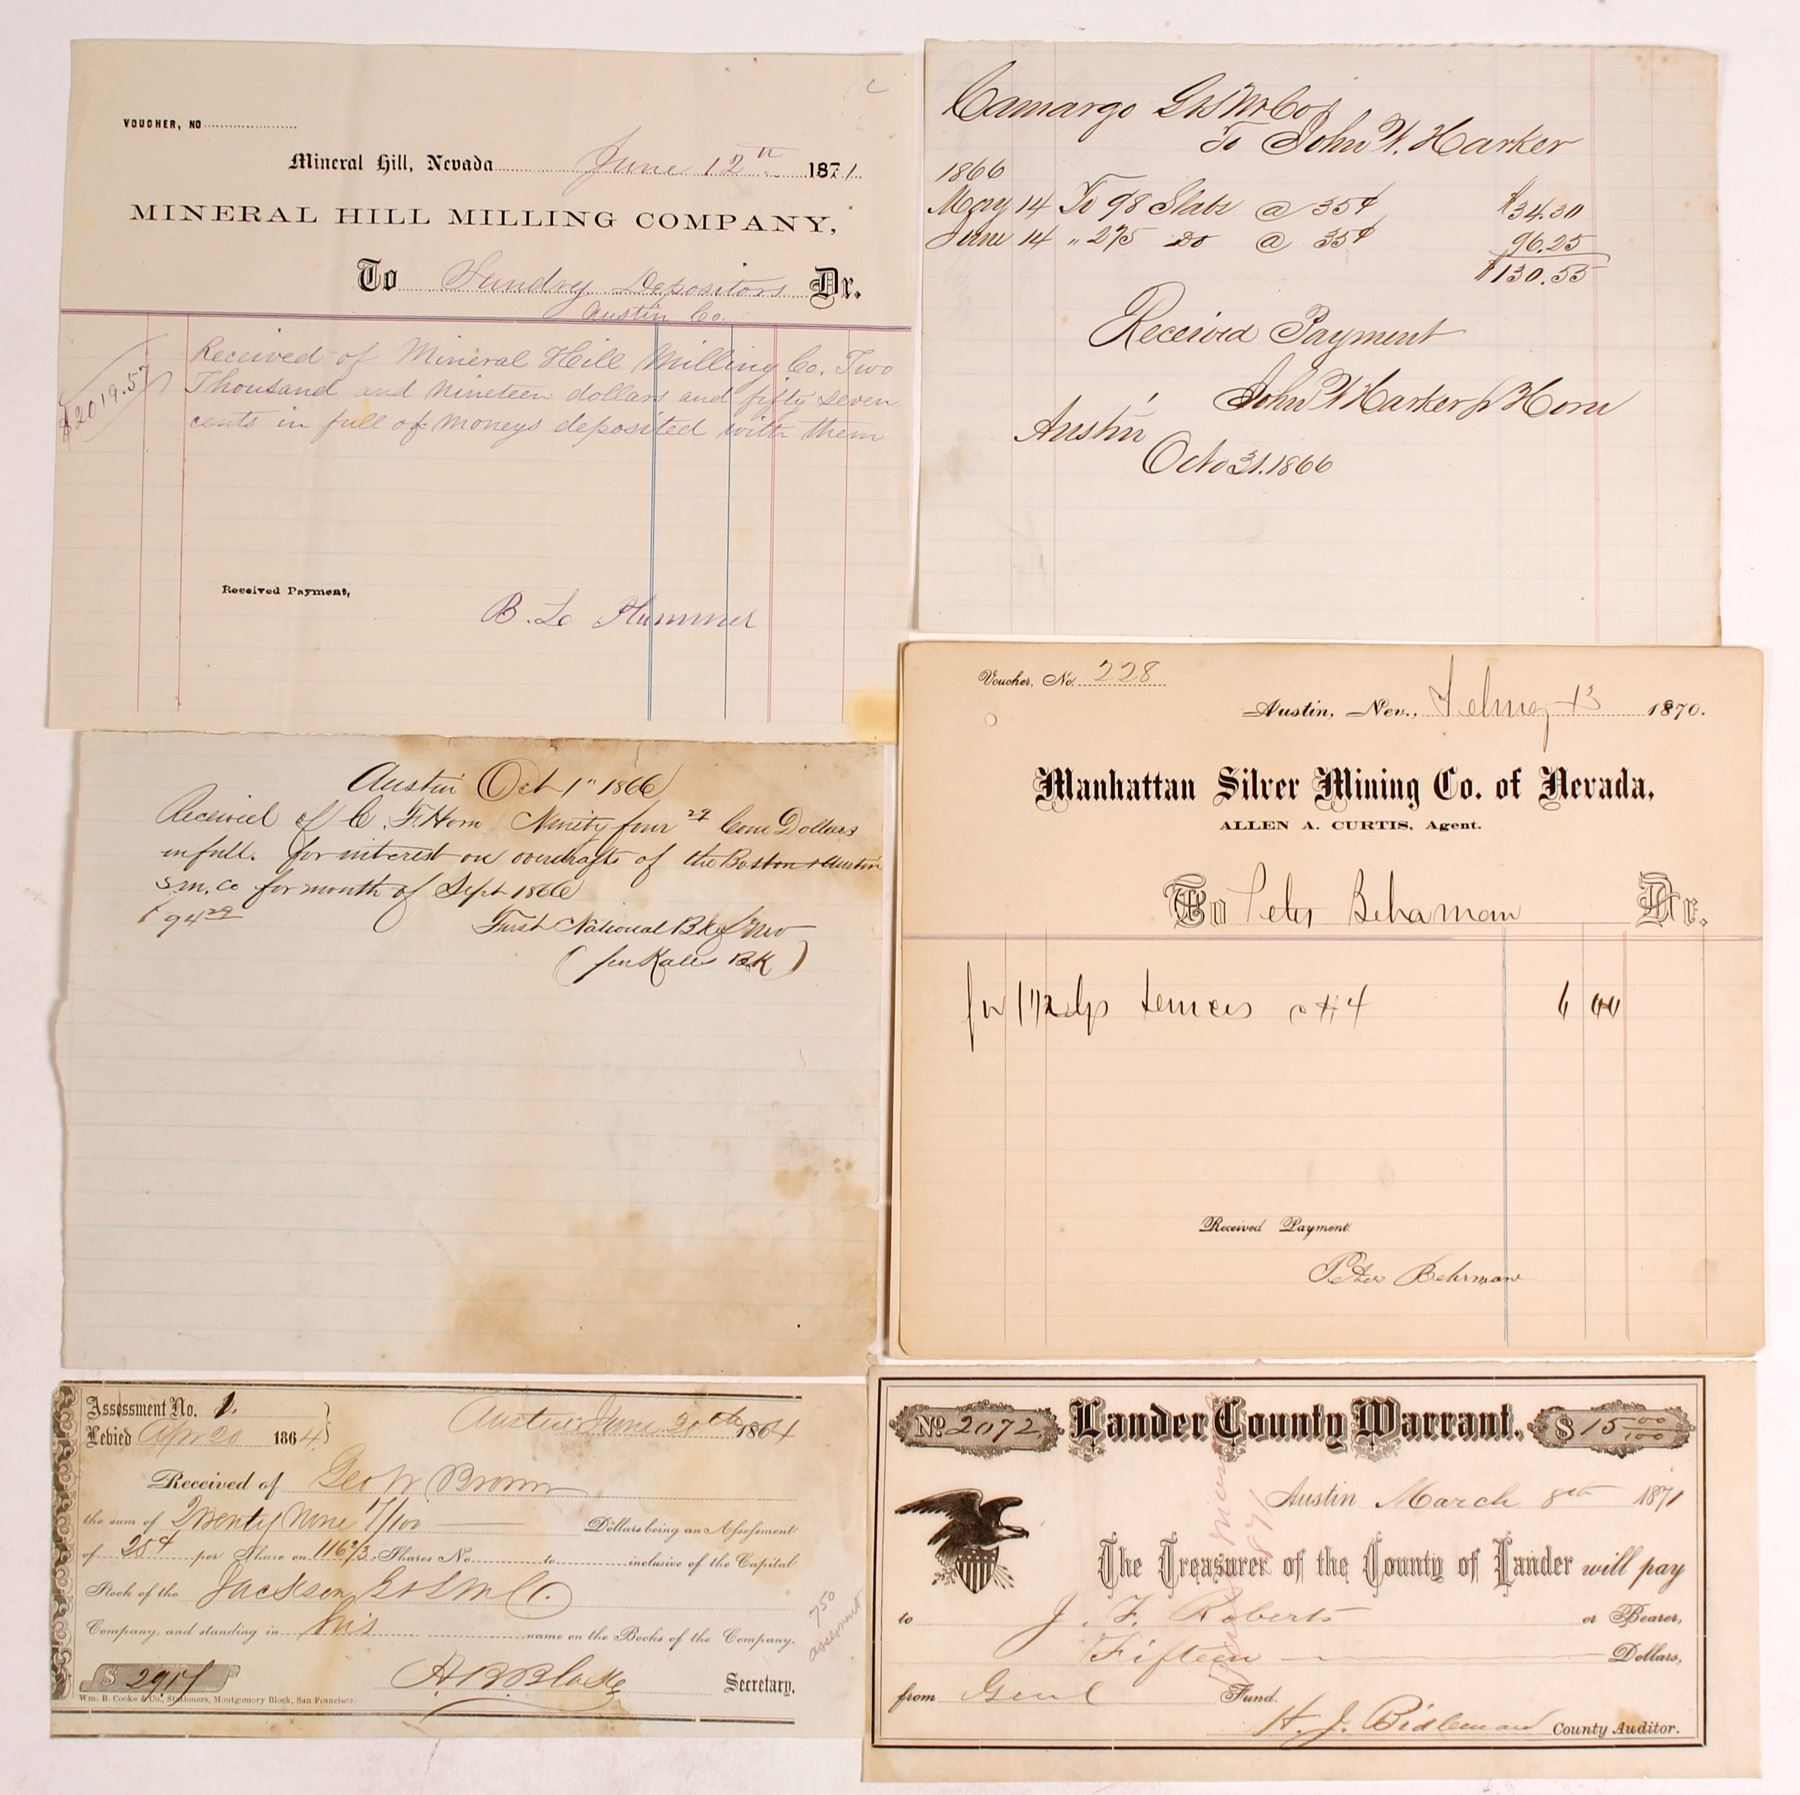 VOUCHER, NO
Mineral Hill, Nevada June 12th 1871.
MINERAL HILL MILLING COMPANY,
To Sundry Depositors Dr.
Austin Co.
$2019.57
Received of Mineral Hill Milling Co. Two
Thousand and nineteen dollars and fifty seven
cents in full of moneys deposited with them
Received Payment,
B. L. Plummer
Camargo
To John W. Harker
1866
May 14 To 98 Slabs @ 35¢ $34.30
June 14 " 275 Do @ 35¢ 96.25
$130.55
Received Payment
John W Harker Horn
Austin
Octo 31. 1866
Austin Oct 1" 1866
Received of C. F. Horn Ninety four 29 Coin Dollars
in full. for interest on overdrafts of the Boston & Austin
S.M. Co for month of Sept 1866
$94 29
First National Bk of Nev
Voucher, No. 228
Austin, Nev., 13 1870.
Manhattan Silver Mining Co. of Nevada,
ALLEN A. CURTIS, Agent.
To Peter Behrman Dr.
6 00
Received Payment
Peter Behrman
Assessment No. 1.
Levied Apr 20 1864
Austin June 20th 1864
Received of Geo W Brown
the sum of Twenty Nine 17/100 Dollars being an Assessment
of 25¢ per Share on 116 2/3 Shares No. to inclusive of the Capital
Stock of the Jackson G & S M Co.
Company, and standing in his name on the Books of the Company.
$ 2917 Secretary.
Wm. B. Cooke & Co., Stationers, Montgomery Block, San Francisco.
750
assesment
No 2072 Lander County Warrant. $ 15 00/100
Austin March 8th 1871
The Treasurer of the County of Lander will pay
to J. F. Roberts or Bearer,
Fifteen Dollars,
from Genl Fund.
H. J. Bidleman County Auditor.